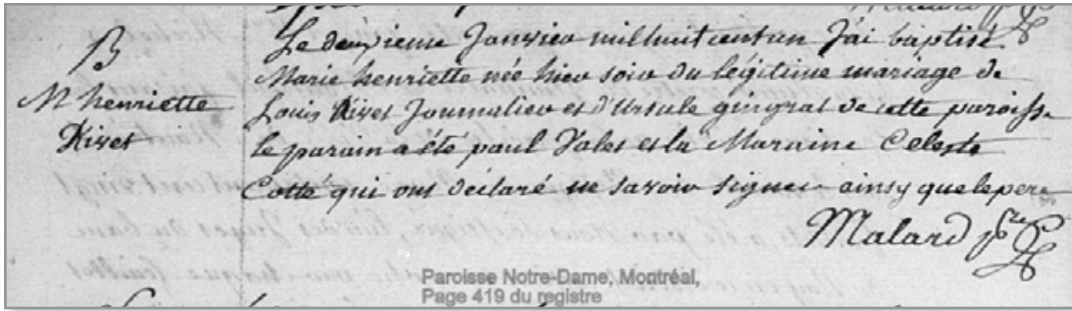 B
M henriette
Rivet
Le deuxieme Janvier mil huit cent un J'ai baptisé
Marie henriette née hier soir du légitime mariage de
Louis Rivet Journalier et d'Ursule gingrat de cette paroisse
le parain a été paul Vales et la Maraine Celeste
Cotté qui ont déclaré ne savoir signer ainsy que le pere
Malard ptre
Paroisse Notre-Dame, Montréal,
Page 419 du registre